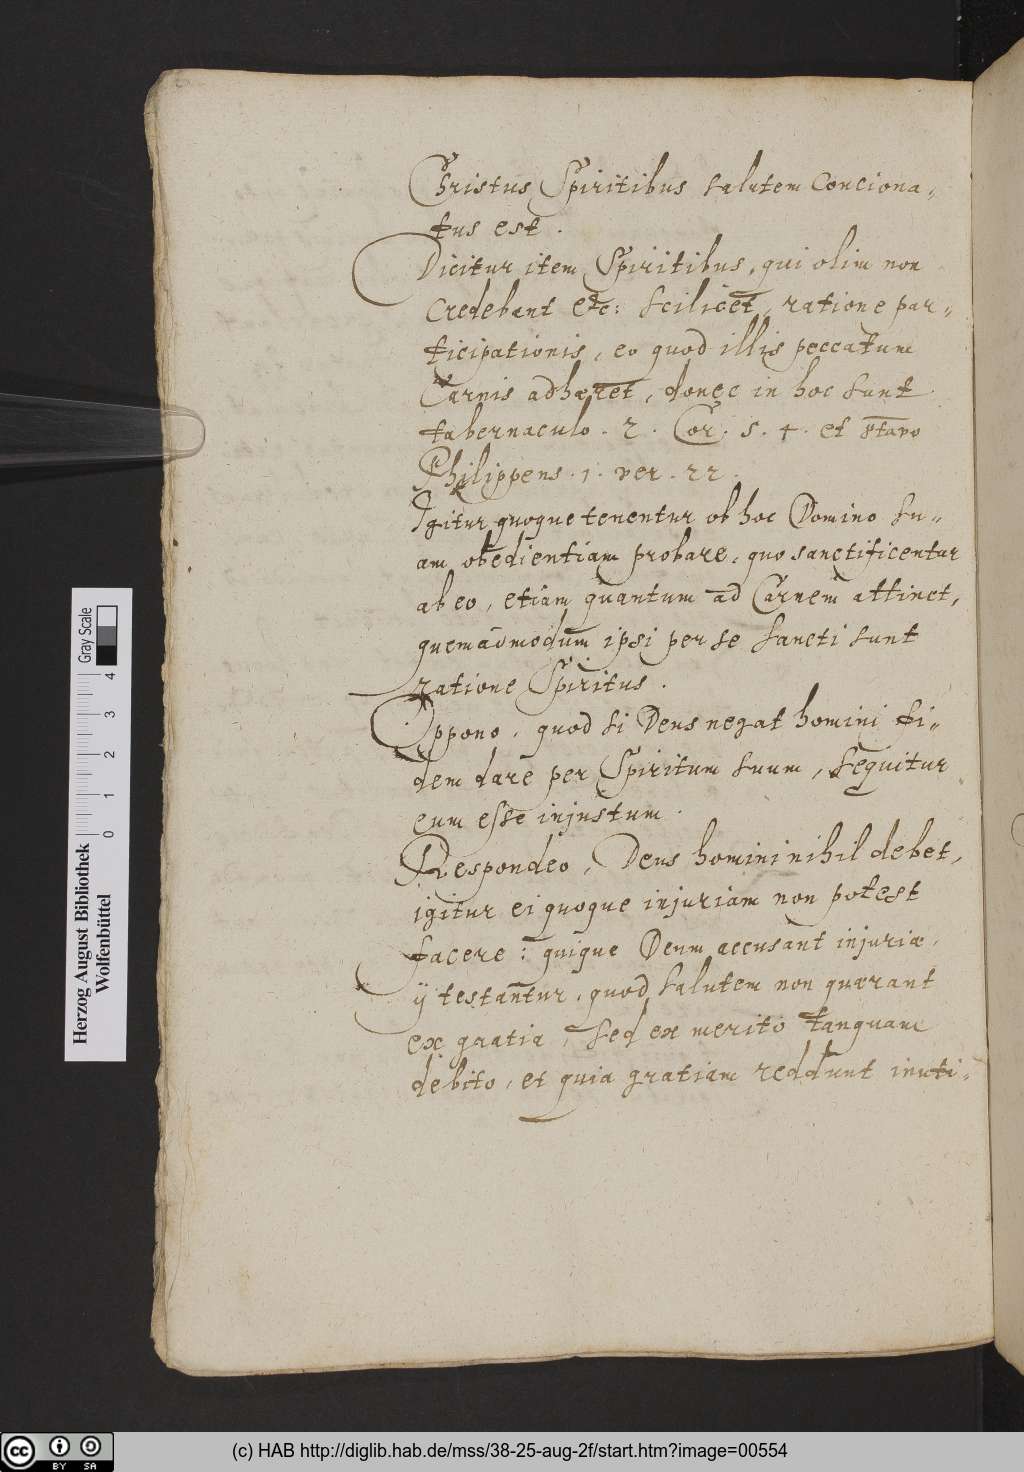 Christus Spiritibus salutem Conciona-
tus est.
Dicitur item Spiritibus, qui olim non
Credebant etc: scilicet, ratione par-
ticipationis, eo quod illis peccatum
Carnis adhæret, donec in hoc sunt
tabernaculo. 2. Cor. 5. 4. et
Philippens. 1. ver. 22.
Igitur quoque tenentur ob hoc Domino su-
am obedientiam probare, quo sanctificentur
ab eo, etiam quantum ad Carnem attinet,
quemadmodum ipsi per se sancti sunt
ratione Spiritus.
Oppono, quod si Deus negat homini fi-
dem dare per Spiritum suum, sequitur
eum esse injustum.
Respondeo, Deus homini nihil debet,
igitur ei quoque injuriam non potest
facere: quique Deum accusant injuriæ,
ij testantur, quod salutem non quærant
ex gratia, sed ex merito tanquam
debito, et quia gratiam reddunt inuti-
Herzog August Bibliothek
Wolfenbüttel
0 1 2 3 4
Gray Scale
cc BY SA
(c) HAB http://diglib.hab.de/mss/38-25-aug-2f/start.htm?image=00554